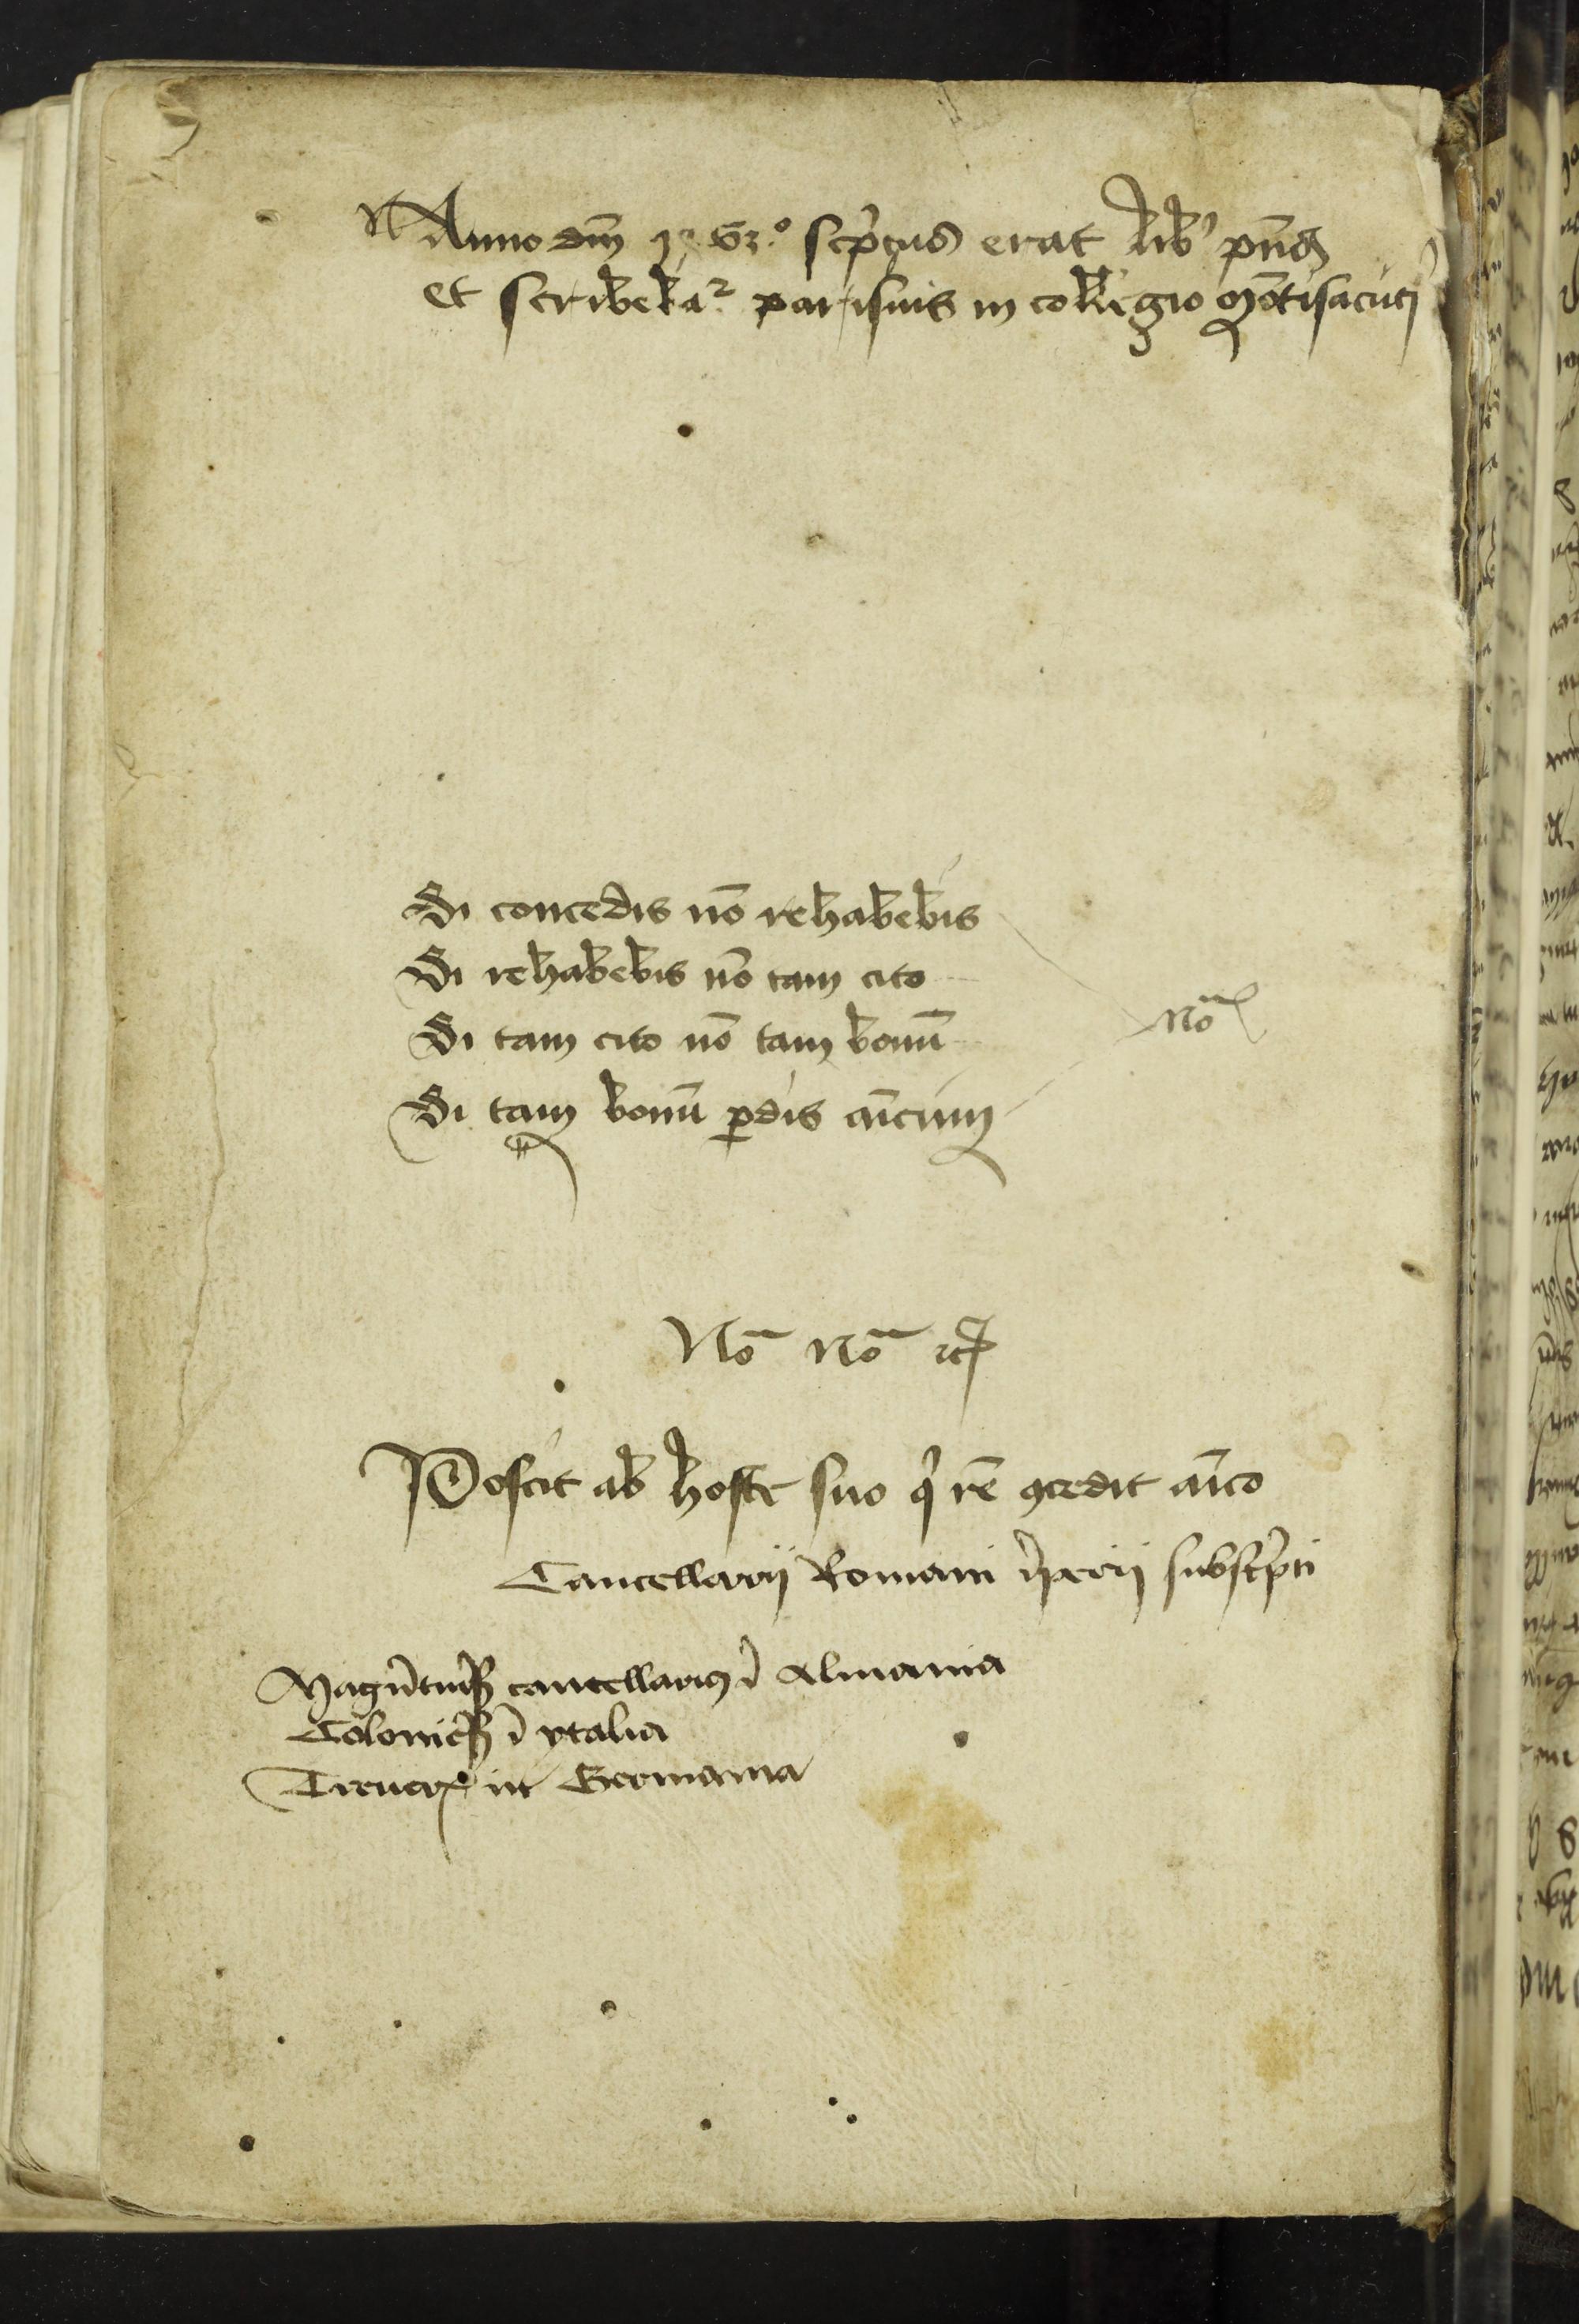 Anno dm̄ 1463.º scͥptus erat lib' pn̄s
et scribebaʳ parisius in collegio Mōtisacuti
Si concedis nō rehabebis
Si rehabebis nō tam cito
Si tam cito nō tam bonū
Nōᵃ
Si tam bonū ꝑdis aīcum
Nōᵃ Nōᵃ ꝛc̄
Poscit ab hoste suo qͥ rē ꝯcedit aīco
Cancellarij Romani īperij subscͥpti
Magūtin̄ꝰ cancellariꝰ ī Almania
Colonieñ ī ytalia
Treuerꝰ in Germania